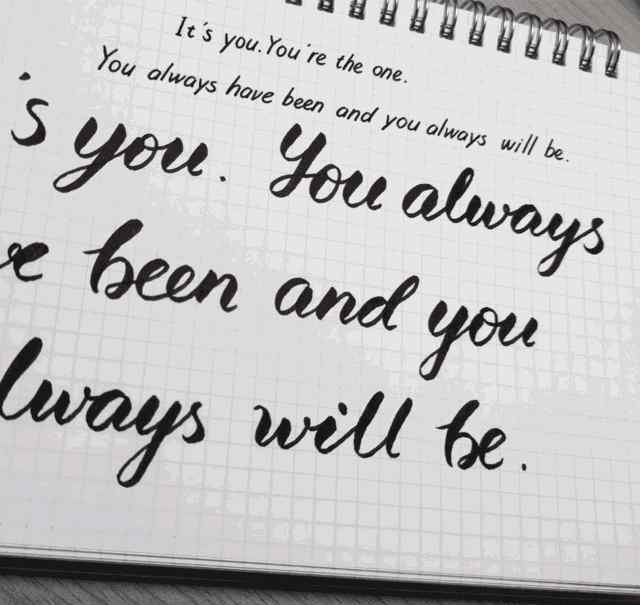 It's you. You're the one.
You always have been and you always will be.
's you. You always
e been and you
lways will be.